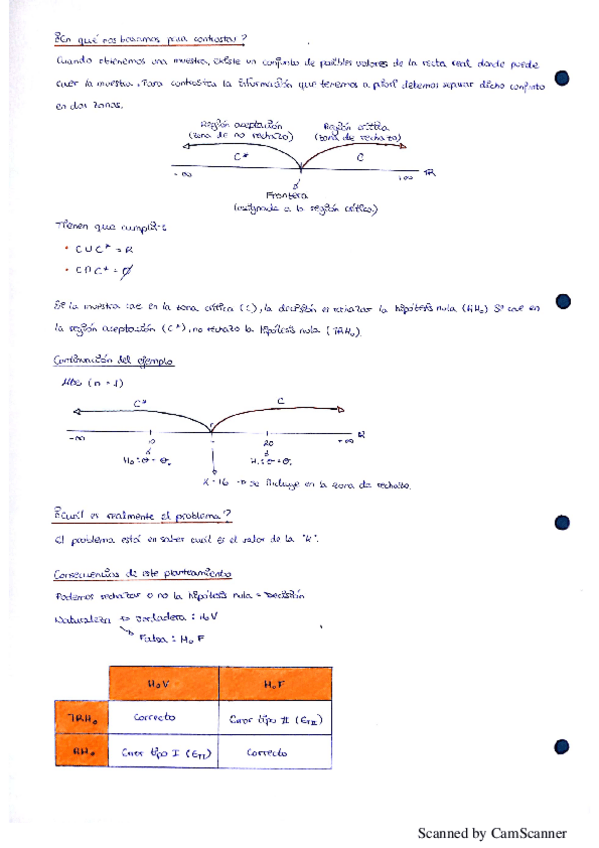 ¿En qué nos basamos para contrastar?
Cuando obtenemos una muestra, existe un conjunto de posibles valores de la recta real donde puede
caer la muestra. Para contrastar la información que tenemos a priori debemos separar dicho conjunto
en dos zonas.
Región aceptación Región crítica
(zona de no rechazo) (zona de rechazo)
C* C
-∞ +∞ R
Frontera
(asignada a la región crítica)
Tienen que cumplir:
• C U C* = R
• C ∩ C* = ∅
Si la muestra cae en la zona crítica (C), la decisión es rechazar la hipótesis nula (RH₀) Si cae en
la región aceptación (C*), no rechazo la hipótesis nula (¬RH₀).
Continuación del ejemplo
MAS (n = 1)
C* C
-∞ 10 20 +∞ R
H₀: θ = θ₀ H₁: θ = θ₁
K = 16 → se incluye en la zona de rechazo.
¿Cuál es realmente el problema?
El problema está en saber cuál es el valor de la "K".
Consecuencias de este planteamiento
Podemos rechazar o no la hipótesis nula = Decisión
Naturaleza → verdadera: H₀V
Falsa: H₀F
H₀V H₀F
¬RH₀ Correcto Error tipo II (ETII)
RH₀ Error tipo I (ETI) Correcto
Scanned by CamScanner